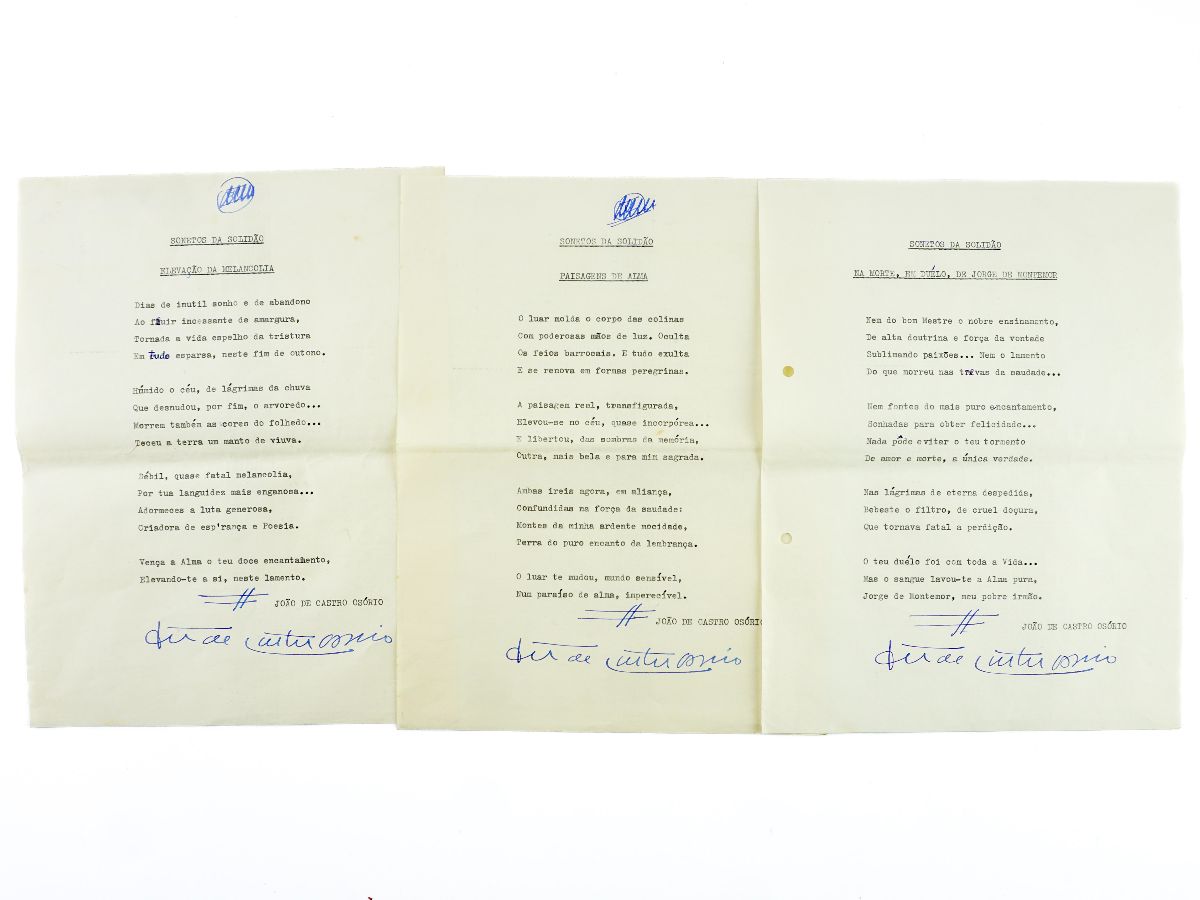 SONETOS DA SOLIDÃO
ELEVAÇÃO DA MELANCOLIA
Dias de inutil sonho e de abandono
Ao fluir incessante de amargura,
Tornada a vida espelho da tristura
Em tudo esparsa, neste fim de outono.
Húmido o céu, de lágrimas da chuva
Que desnudou, por fim, o arvoredo...
Morrem também as cores do folhedo...
Teceu a terra um manto de viuva.
Débil, quase fatal melancolia,
Por tua languidez mais enganosa...
Adormeces a luta generosa,
Criadora de esp'rança e Poesia.
Vença a Alma o teu doce encantamento,
Elevando-te a si, neste lamento.
JOÃO DE CASTRO OSÓRIO
João de Castro Osório
SONETOS DA SOLIDÃO
PAISAGENS DE ALMA
O luar molda o corpo das colinas
Com poderosas mãos de luz. Oculta
Os feios barrocais. E tudo exulta
E se renova em formas peregrinas.
A paisagem real, transfigurada,
Elevou-se no céu, quase incorpórea...
E libertou, das sombras da memória,
Outra, mais bela e para mim sagrada.
Ambas ireis agora, em aliança,
Confundidas na força da saudade:
Montes da minha ardente mocidade,
Terra do puro encanto da lembrança.
O luar te mudou, mundo sensível,
Num paraíso de alma, imperecível.
JOÃO DE CASTRO OSÓRIO
João de Castro Osório
SONETOS DA SOLIDÃO
NA MORTE, EM DUÉLO, DE JORGE DE MONTEMOR
Nem do bom Mestre o nobre ensinamento,
De alta doutrina e força da vontade
Sublimando paixões... Nem o lamento
Do que morreu nas trévas da saudade...
Nem fontes do mais puro encantamento,
Sonhadas para obter felicidade...
Nada pôde evitar o teu tormento
De amor e morte, a única verdade.
Nas lágrimas de eterna despedida,
Bebeste o filtro, de cruel doçura,
Que tornava fatal a perdição.
O teu duélo foi com toda a Vida...
Mas o sangue lavou-te a Alma pura,
Jorge de Montemor, meu pobre irmão.
JOÃO DE CASTRO OSÓRIO
João de Castro Osório